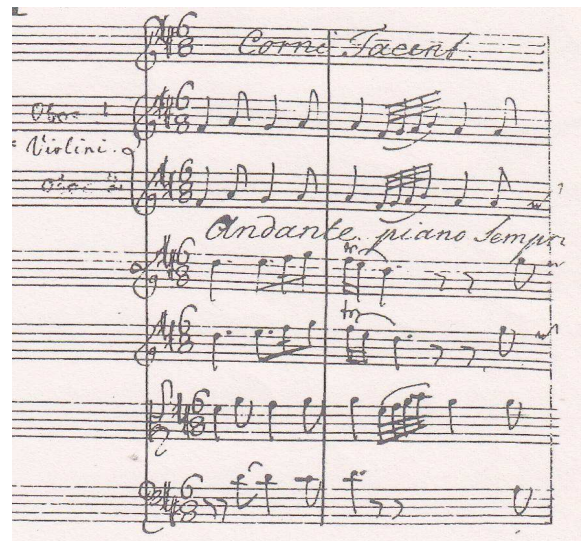 Corni Tacent.
Oboe 1
Violini.
Oboe 2
Andante. piano Sempr
tr
tr